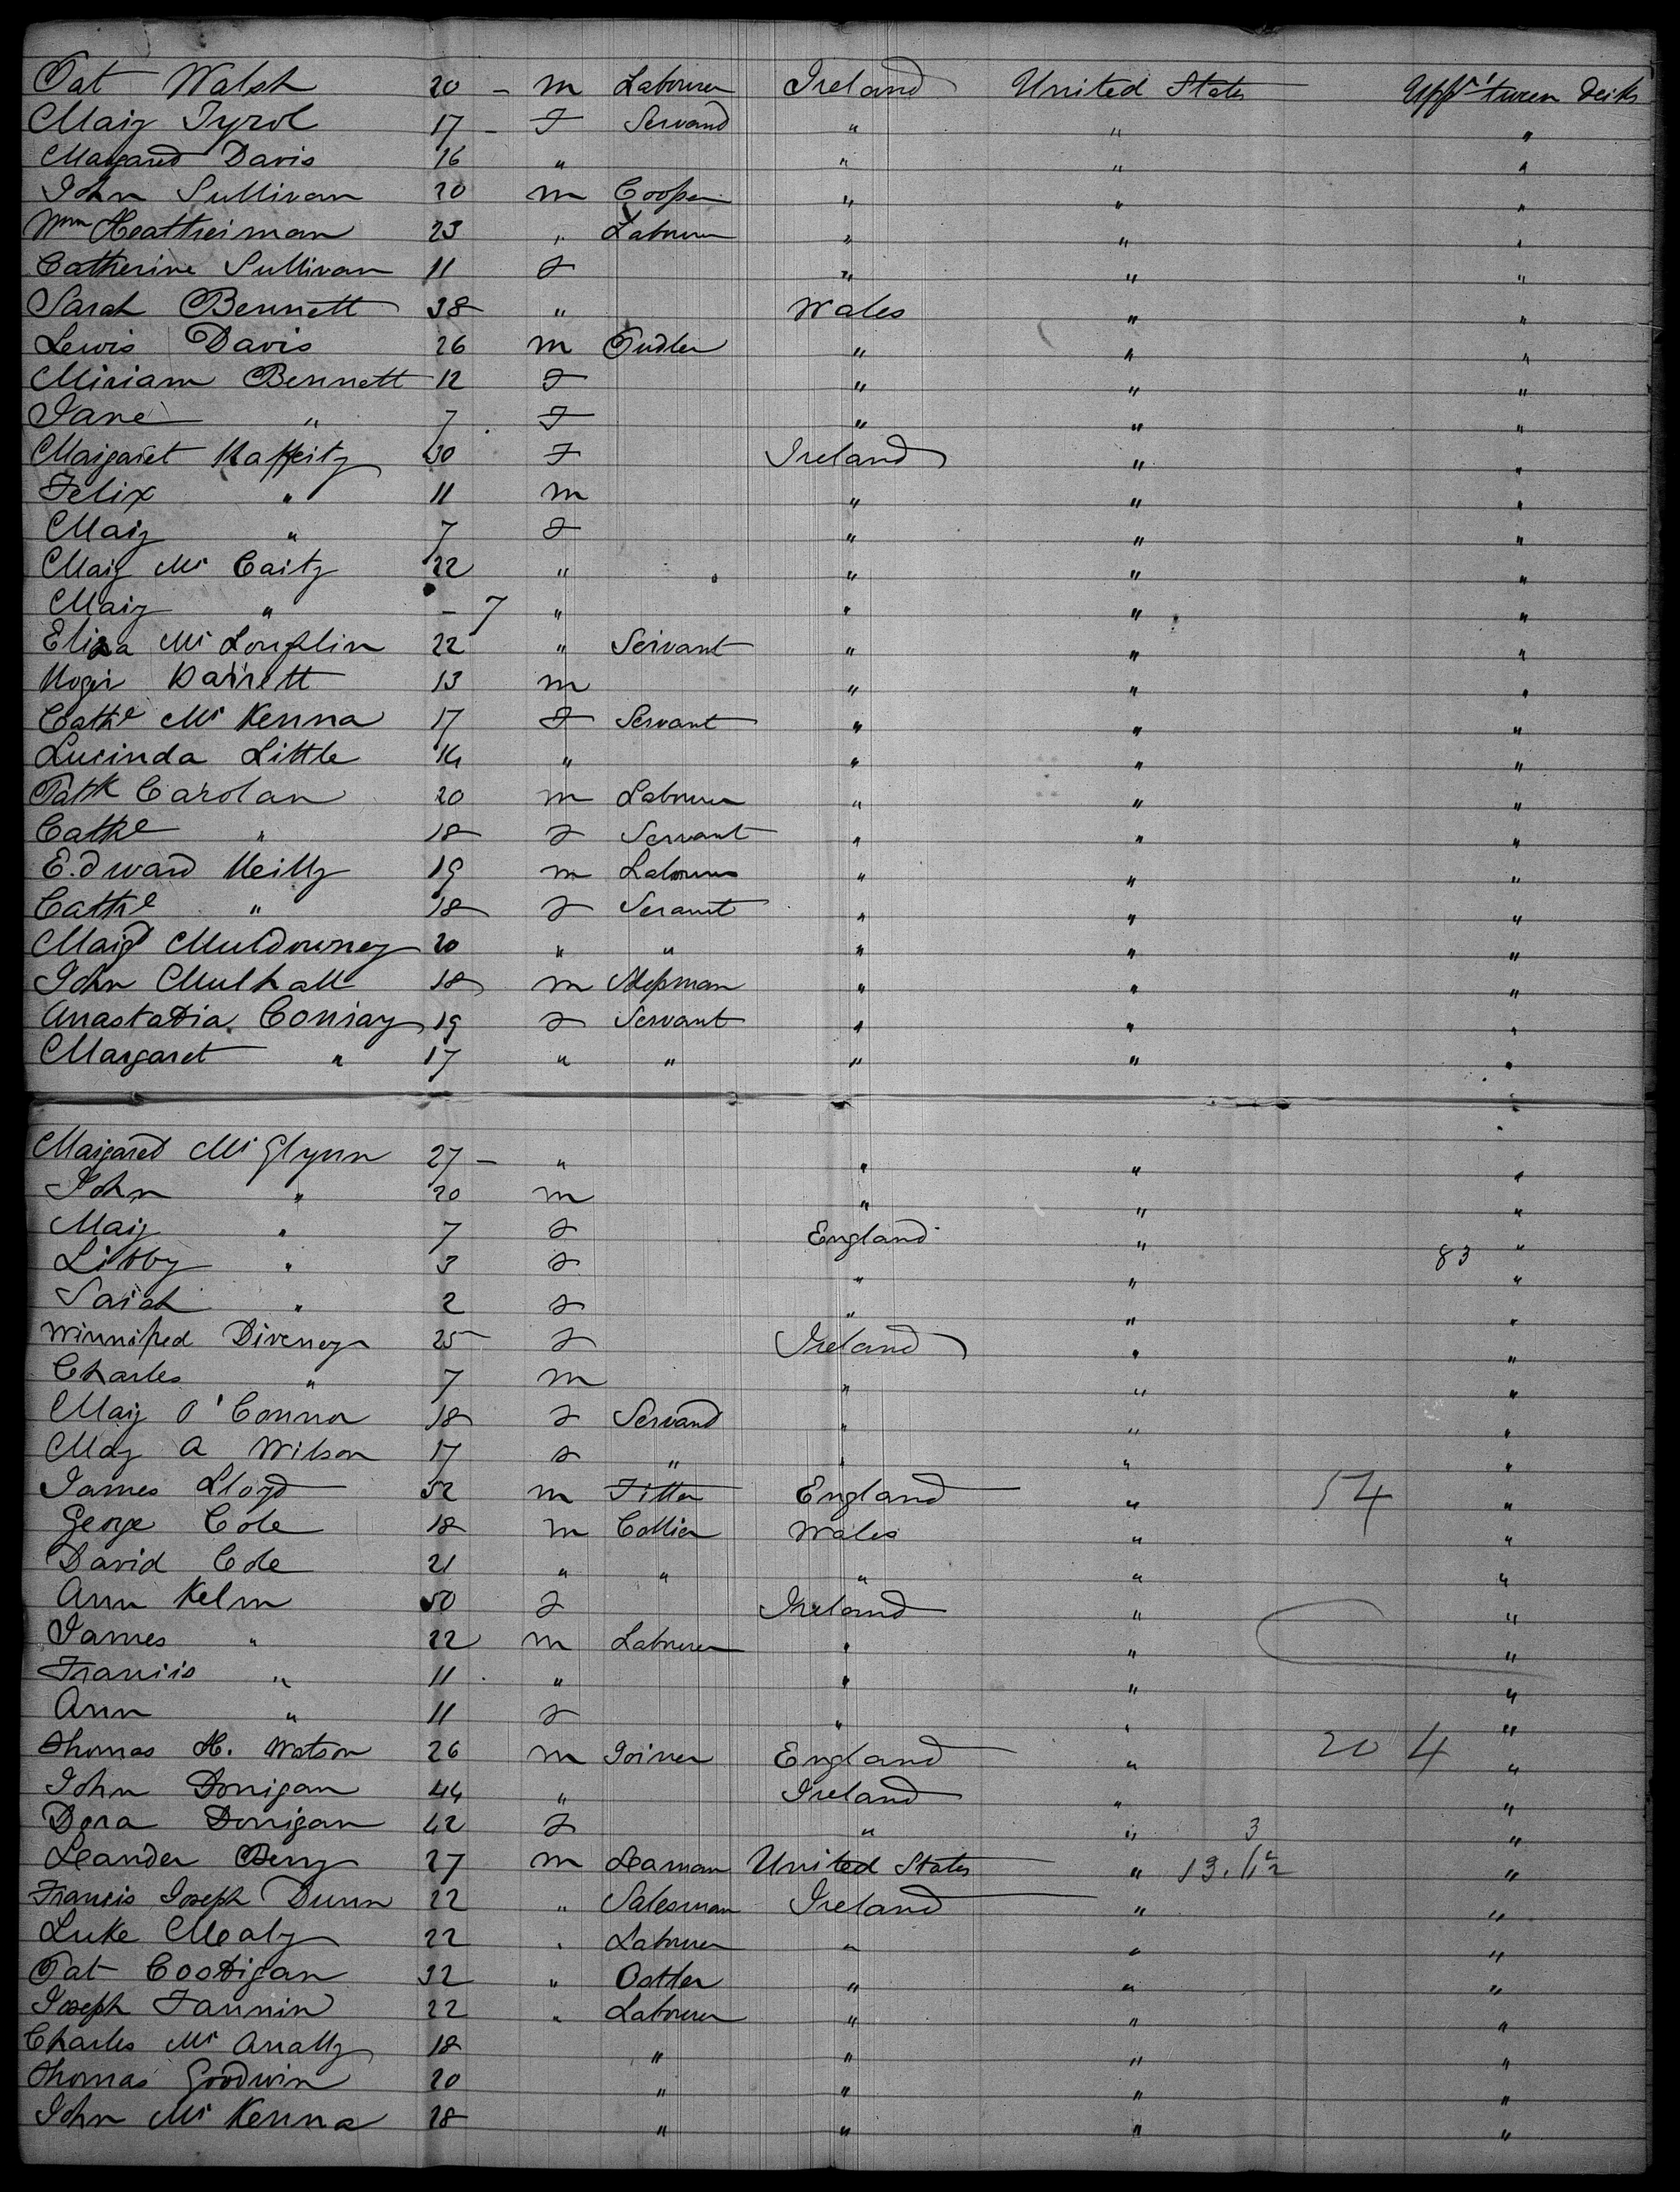 Pat Walsh 20 – m Labourer Ireland United States Upp'r 'tween decks
Mary Tyrol 17 – F Servand " " "
Margared Davis 16 " " " "
John Sullivan 20 m Cooper " " "
Wm 23 " Labourer " " "
Catherine Sullivan 11 F " " "
Sarah Bennett 38 " Wales " "
Lewis Davis 26 m Pudler " " "
Miriam Bennett 12 F " " "
Jane " 7 F " " "
Margaret Raffeity 30 F Ireland " "
Felix " 11 m " " "
Mary " 7 F " " "
Mary Mc Carty 22 " " " "
Mary " – 7 " " " "
Eliza Mc Loughlin 22 " Servant " " "
Roger Barrett 13 m " " "
Cathe Mc Kenna 17 F Servant " " "
Lucinda Little 16 " " " "
Patk Carolan 20 m Labourer " " "
Cathe " 18 F Servant " " "
Edward Reilly 19 m Labourer " " "
Cathe " 18 F Serant " " "
Margt Muldowney 20 " " " " "
John Mulhall 18 m Shopman " " "
Anastatia Conray 19 F Servant " " "
Margaret " 17 " " " " "
Margared Mc Glynn 27 – " " " "
John " 20 m " " "
Mary " 7 F England " "
Libby " 3 F " " 83 "
Sarah " 2 F " " "
Winnifred Diveney 25 F Ireland " "
Charles " 7 m " " "
Mary O'Connor 18 F Servand " " "
May A Wilson 17 F " " " "
James Lloyd 52 m Fitter England " 54 "
George Cole 18 m Collier Wales " "
David Cole 21 " " " " "
Ann Kelm 50 F Ireland " "
James " 22 m Labourer " " "
Francis " 11 " " " "
Ann " 11 F " " "
Thomas H. Watson 26 m Joiner England " 20 4 "
John Donigan 44 " Ireland " "
Dora Donigan 42 F " " 3 "
Leander Berry 27 m Seaman United States " 13. "
Francis Joseph Dunn 22 " Salesman Ireland " "
Luke Mealy 22 " Labourer " " "
Pat Costigan 32 " Ostler " " "
Joseph Fannin 22 " Labourer " " "
Charles Mc Anally 18 " " " "
Thomas Goodwin 20 " " " "
John Mc Kenna 28 " " " "